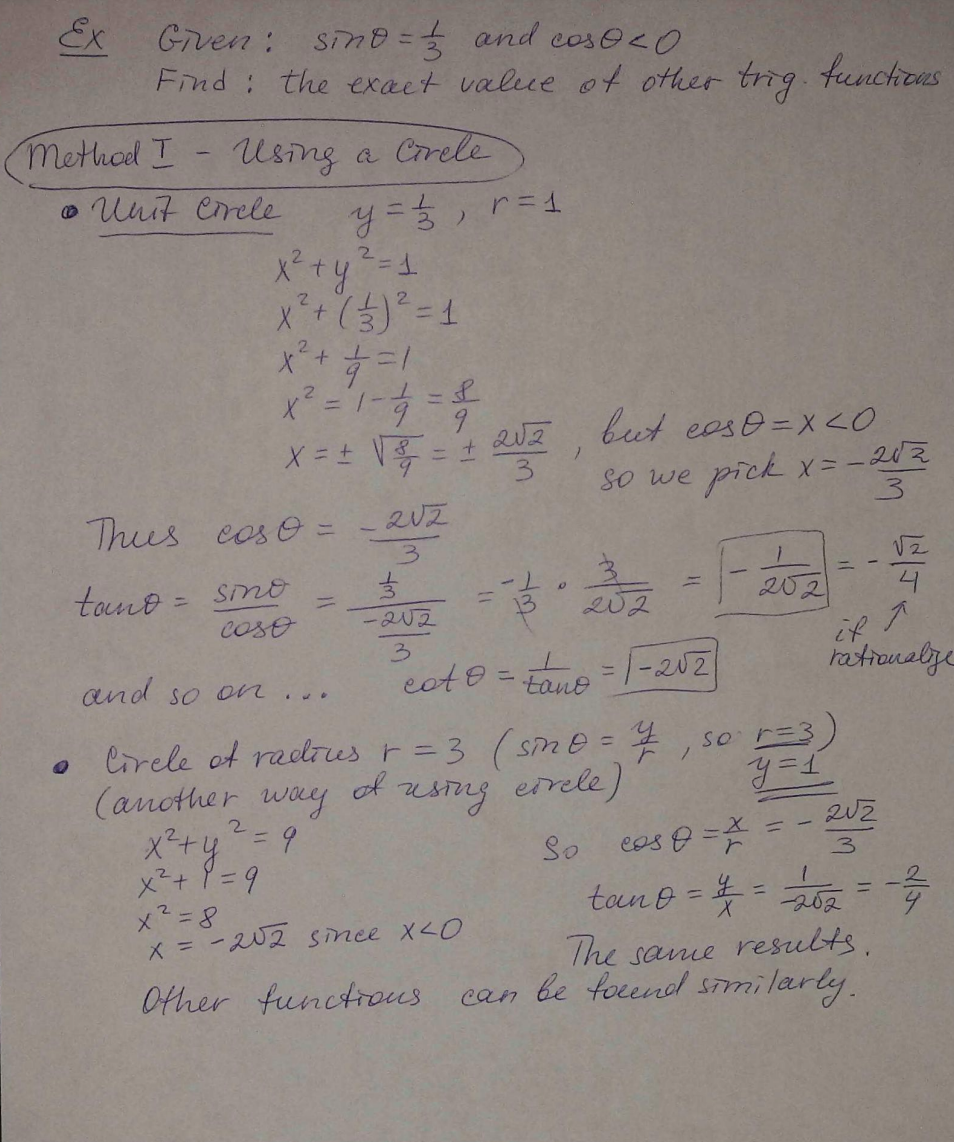 Ex Given: sinθ = 1/3 and cosθ<0
Find: the exact value of other trig. functions
Method I - Using a Circle
• Unit Circle y = 1/3, r = 1
x² + y² = 1
x² + (1/3)² = 1
x² + 1/9 = 1
x² = 1 - 1/9 = 8/9
x = ± √(8/9) = ± 2√2/3, but cosθ = x < 0
so we pick x = - 2√2/3
Thus cosθ = - 2√2/3
tanθ = sinθ/cosθ = (1/3)/(-2√2/3) = -1/3 • 3/2√2 = - 1/2√2 = - √2/4
if rationalize
and so on ... cotθ = 1/tanθ = -2√2
• Circle of radius r = 3 (sinθ = y/r, so r=3)
y=1
(another way of using circle)
x² + y² = 9
So cosθ = x/r = - 2√2/3
x² + 1 = 9
tanθ = y/x = 1/-2√2 = -2/4
x² = 8
x = -2√2 since x<0
The same results.
Other functions can be found similarly.